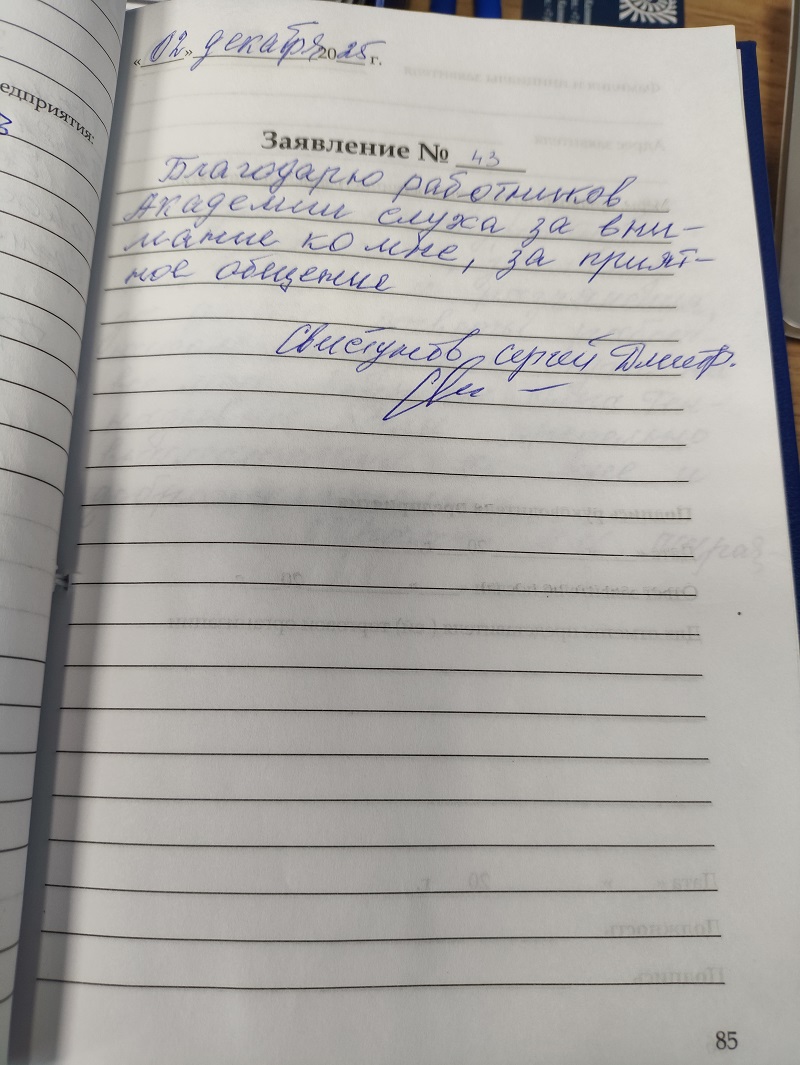 едприятия:
«02» декабря 2025 г.
Заявление № 43
Благодарю работников
Академии слуха за вни-
мание ко мне, за прият-
ное общение
Свистунов Сергей Дмитр.
85